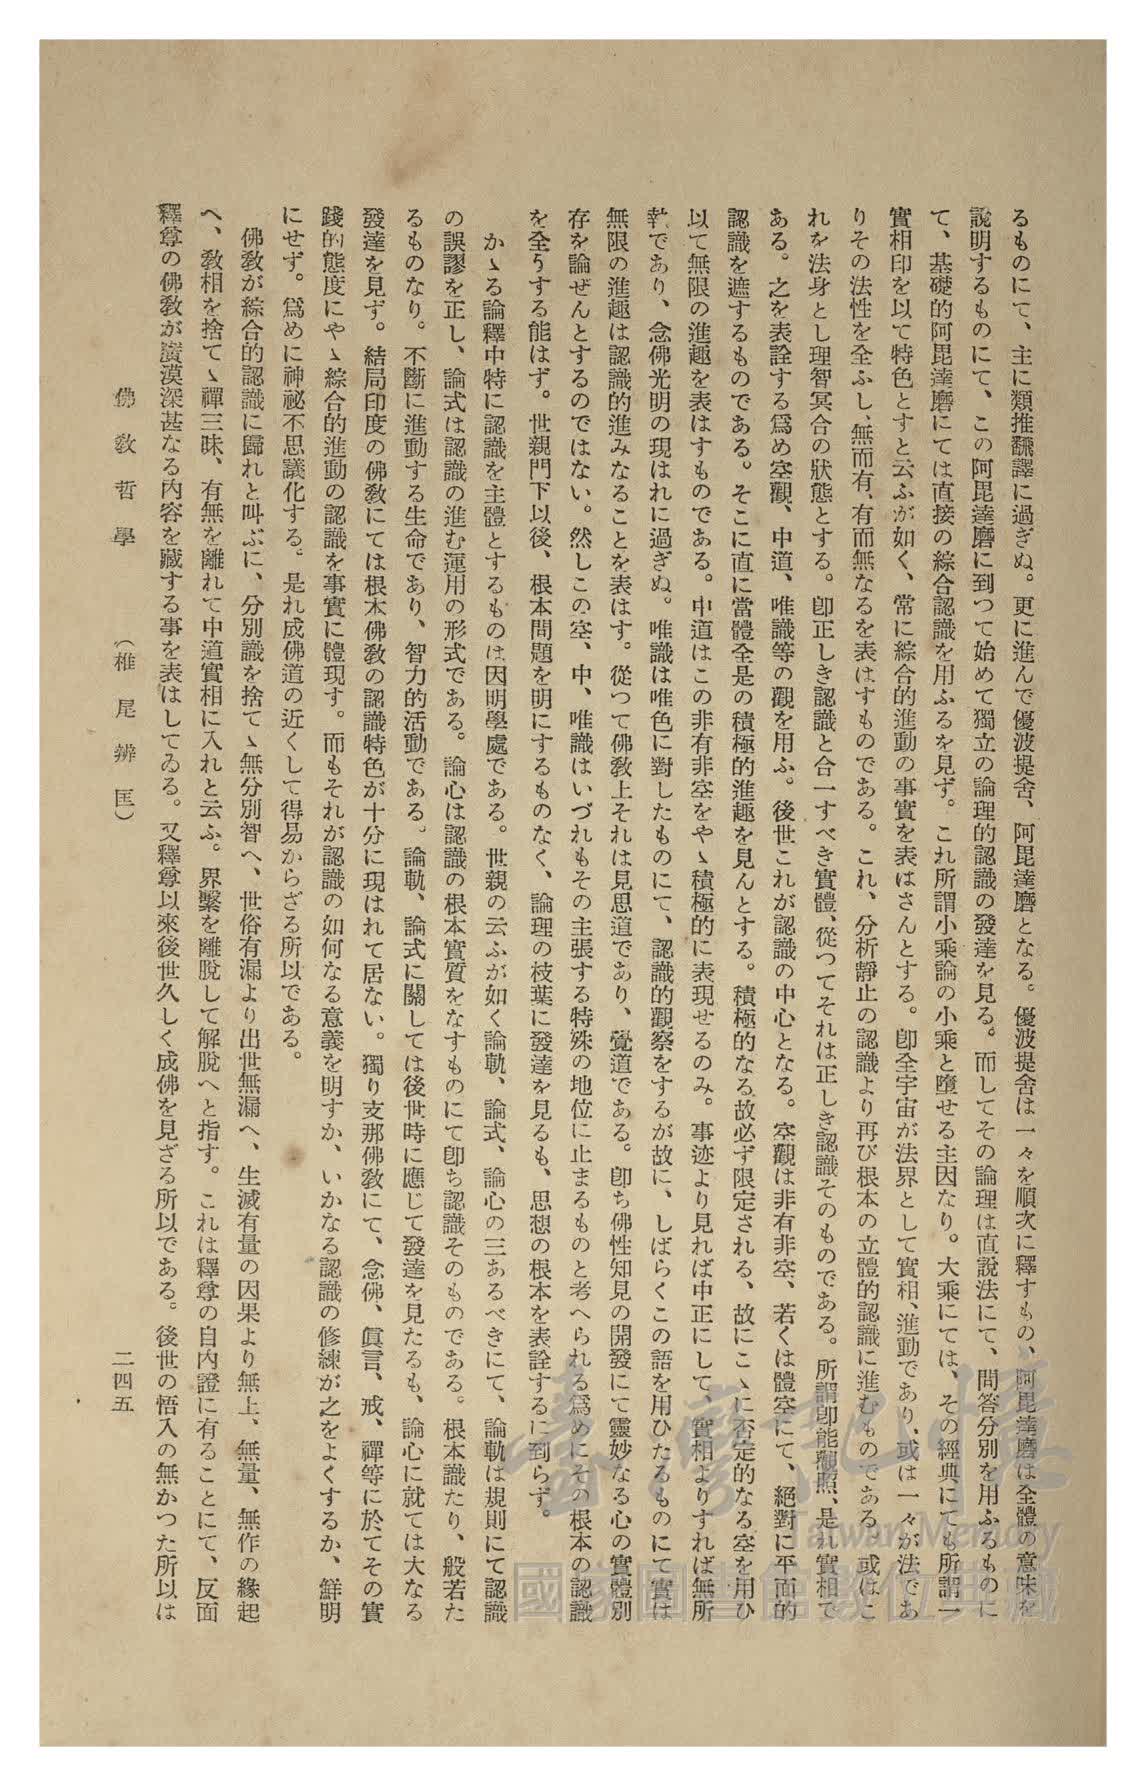 るものにて、主に類推飜譯に過ぎぬ。更に進んで優波提舍、阿毘達磨となる。優波提舍は一々を順次に釋すもの、阿毘達磨は全體の意味を
說明するものにて、この阿毘達磨に到つて始めて獨立の論理的認識の發達を見る。而してその論理は直說法にて、問答分別を用ふるものに
て、基礎的阿毘達磨にては直接の綜合認識を用ふるを見ず。これ所謂小乘論の小乘と墮せる主因なり。大乘にては、その經典にても所謂一
實相印を以て特色とすと云ふが如く、常に綜合的進動の事實を表はさんとする。卽全宇宙が法界として實相、進動であり、或は一々が法であ
りその法性を全ふし、無而有、有而無なるを表はすものである。これ、分析靜止の認識より再び根本の立體的認識に進むものである。或はこ
れを法身とし理智冥合の狀態とする。卽正しき認識と合一すべき實體、從つてそれは正しき認識そのものである。所謂卽能觀照、是れ實相で
ある。之を表詮する爲め空觀、中道、唯識等の觀を用ふ。後世これが認識の中心となる。空觀は非有非空、若くは體空にて、絕對に平面的
認識を遮するものである。そこに直に當體全是の積極的進趣を見んとする。積極的なる故必ず限定される、故にこゝに否定的なる空を用ひ
以て無限の進趣を表はすものである。中道はこの非有非空をやゝ積極的に表現せるのみ。事迹より見れば中正にして、實相よりすれば無所
執であり、念佛光明の現はれに過ぎぬ。唯識は唯色に對したものにて、認識的觀察をするが故に、しばらくこの語を用ひたるものにて實は
無限の進趣は認識的進みなることを表はす。從つて佛敎上それは見思道であり、覺道である。卽ち佛性知見の開發にて靈妙なる心の實體別
存を論ぜんとするのではない。然しこの空、中、唯識はいづれもその主張する特殊の地位に止まるものと考へられる爲めにその根本の認識
を全うする能はず。世親門下以後、根本問題を明にするものなく、論理の枝葉に發達を見るも、思想の根本を表詮するに到らず。
かゝる論釋中特に認識を主體とするものは因明學處である。世親の云ふが如く論軌、論式、論心の三あるべきにて、論軌は規則にて認識
の誤謬を正し、論式は認識の進む運用の形式である。論心は認識の根本實質をなすものにて卽ち認識そのものである。根本識たり、般若た
るものなり。不斷に進動する生命であり、智力的活動である。論軌、論式に關しては後世時に應じて發達を見たるも、論心に就ては大なる
發達を見ず。結局印度の佛敎にては根本佛敎の認識特色が十分に現はれて居ない。獨り支那佛敎にて、念佛、眞言、戒、禪等に於てその實
踐的態度にやゝ綜合的進動の認識を事實に體現す。而もそれが認識の如何なる意義を明すか、いかなる認識の修練が之をよくするか、鮮明
にせず。爲めに神祕不思議化する。是れ成佛道の近くして得易からざる所以である。
佛敎が綜合的認識に歸れと叫ぶに、分別識を捨てゝ無分別智へ、世俗有漏より出世無漏へ、生滅有量の因果より無上、無量、無作の緣起
へ、敎相を捨てゝ禪三昧、有無を離れて中道實相に入れと云ふ。界繫を離脫して解脫へと指す。これは釋尊の自內證に有ることにて、反面
釋尊の佛敎が廣漠深甚なる內容を藏する事を表はしてゐる。又釋尊以來後世久しく成佛を見ざる所以である。後世の悟入の無かつた所以は
佛敎哲學 (椎尾辨匡) 二四五
臺灣記憶
Taiwan Memory
國家圖書館數位典藏